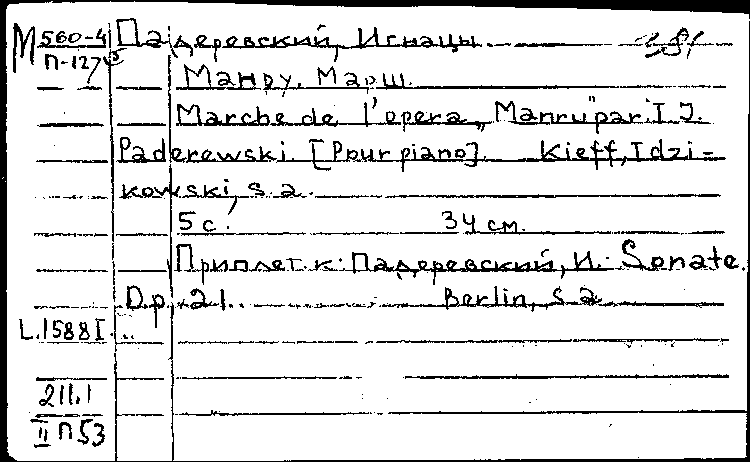 М 560-4 Падеревский, Игнацы.
П-127
Манру. Марш.
Marche de l'opera „Manru" par I. J.
Paderewski. [Pour piano]. Kieff, Idzi-
kowski, s. a.
5 с. 34 см.
Приплет. к: Падеревский, И. Sonate.
Op. 21. Berlin, s. a.
L.1588 I
211.1
II П 53